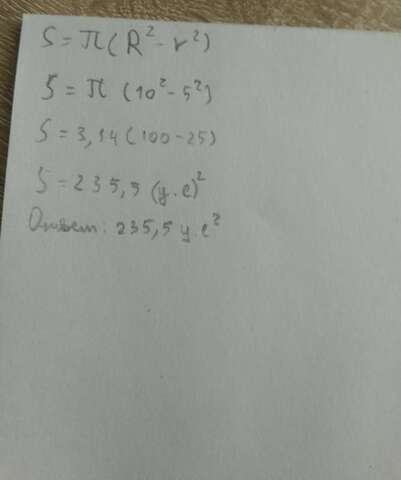 S = π(R² - r²)
S = π (10² - 5²)
S = 3,14 (100 - 25)
S = 235,5 (у.е)²
Ответ: 235,5 у.е²